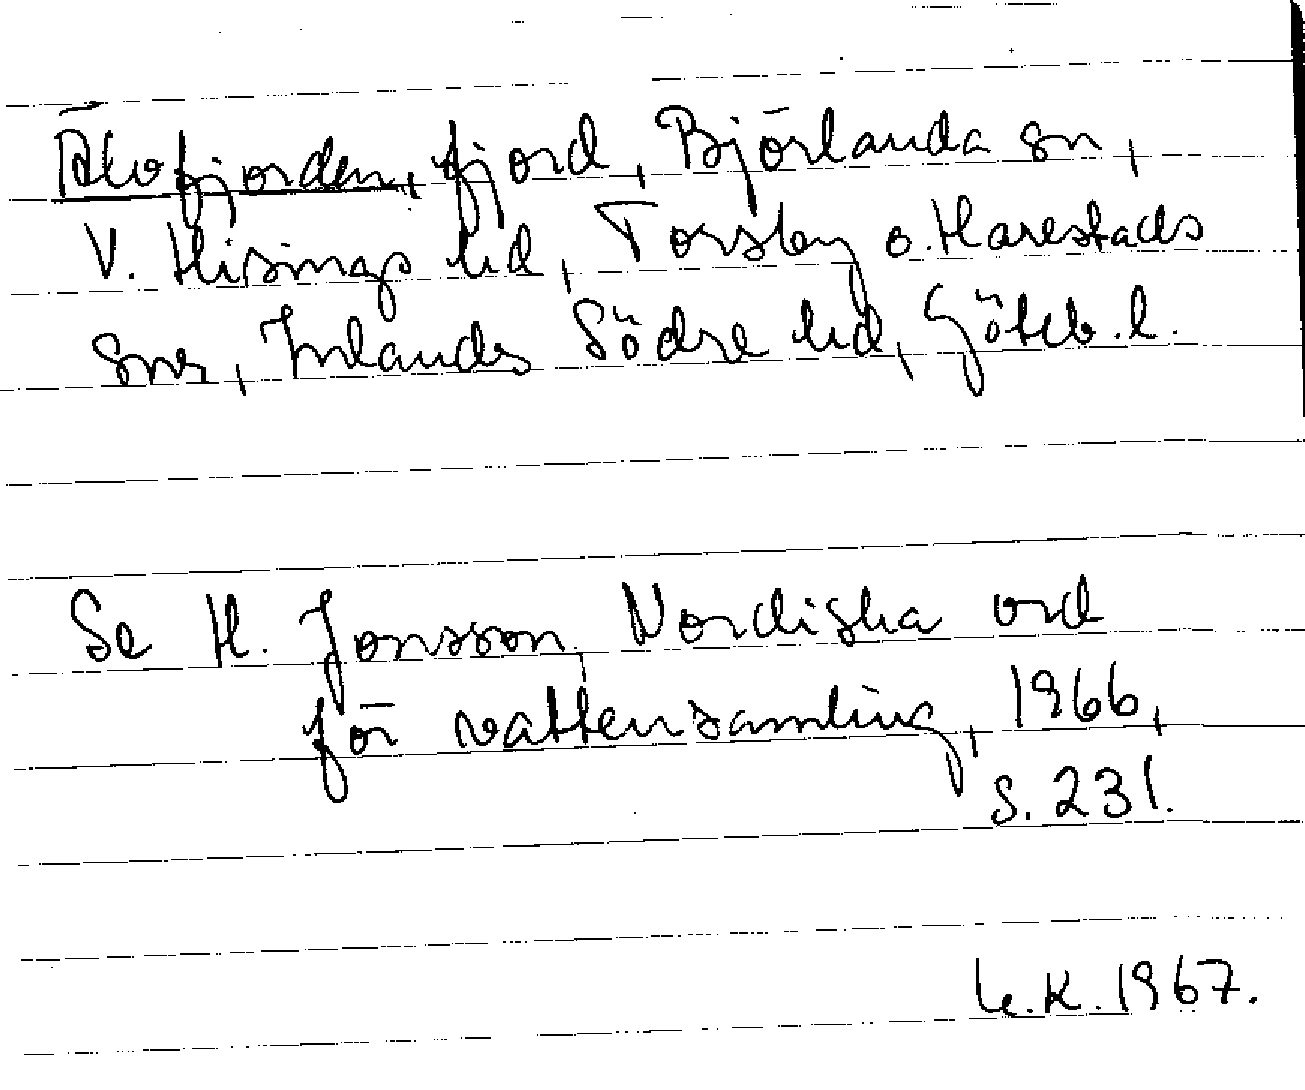 Älvfjorden, fjord, Björlanda sn,
V. Hisings hd, Torsby o. Harestads
snr, Inlands Södre hd, Göteb. l.
Se H. Jonsson, Nordiska ord
för vattensamling, 1966,
s. 231.
K. 1967.